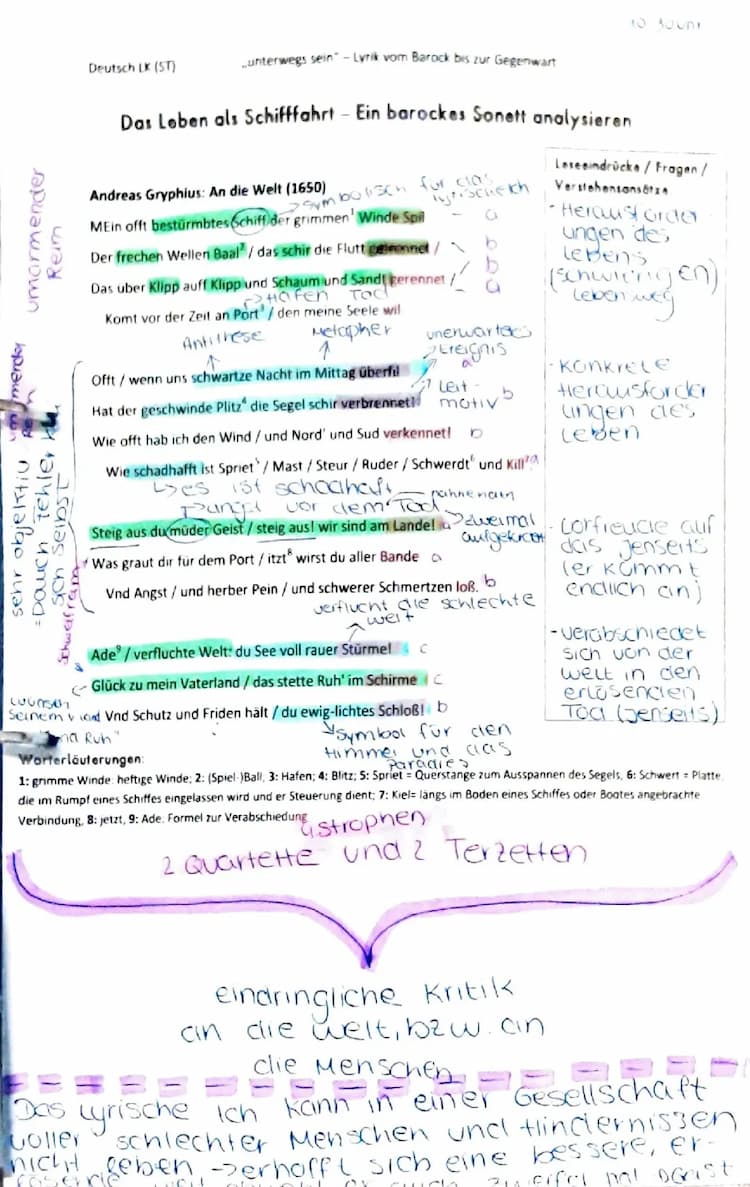 10 Juni
Deutsch LK (ST) „unterwegs sein" – Lyrik vom Barock bis zur Gegenwart
Das Leben als Schifffahrt – Ein barockes Sonett analysieren
Leseeindrücke / Fragen /
Verstehensansätze
umarmender
Reim
Andreas Gryphius: An die Welt (1650)
symbolisch für das
lyrische Ich
MEin offt bestürmbtes Schiff der grimmen¹ Winde Spil a
Der frechen Wellen Baal² / das schir die Flutt getrennet / b
Das uber Klipp auff Klipp und Schaum und Sandt gerennet / b
a
Hafen Tod
Komt vor der Zeit an Port³ / den meine Seele wil
- Herausforder
ungen des
Lebens
(schwierigen)
Lebenweg
Antithese
Metapher
unerwartetes
Ereignis
Offt / wenn uns schwartze Nacht im Mittag überfil a
Leit-
motiv
Hat der geschwinde Plitz⁴ die Segel schir verbrennet! b
Wie offt hab ich den Wind / und Nord' und Sud verkennet! b
Wie schadhafft ist Spriet⁵ / Mast / Steur / Ruder / Schwerdt⁶ und Kill⁷ a
- Konkrete
Herausforder
ungen des
Leben
umarmender
Reim
sehr objektiv
sich selbst
Schweifreim
es ist schadhaft
Angst vor dem Tod
Steig aus du müder Geist / steig aus! wir sind am Lande! a
zweimal
Was graut dir für dem Port / itzt⁸ wirst du aller Bande a
Vnd Angst / und herber Pein / und schwerer Schmertzen loß. b
- Vorfreude auf
das Jenseits
(er kommt
endlich an)
verflucht die schlechte
Welt
Ade⁹ / verfluchte Welt: du See voll rauer Stürme! c
Glück zu mein Vaterland / das stette Ruh' im Schirme c
Vnd Schutz und Friden hält / du ewig-lichtes Schloß! b
- verabschiedet
sich von der
Welt in den
erlösenden
Tod (Jenseits)
seinem
Symbol für den
Himmel und das
Paradies
Worterläuterungen:
1: grimme Winde: heftige Winde; 2: (Spiel-)Ball, 3: Hafen; 4: Blitz; 5: Spriet = Querstange zum Ausspannen des Segels, 6: Schwert = Platte,
die im Rumpf eines Schiffes eingelassen wird und er Steuerung dient; 7: Kiel= längs im Boden eines Schiffes oder Bootes angebrachte
Verbindung, 8: jetzt, 9: Ade. Formel zur Verabschiedung
4 strophen
2 Quartette und 2 Terzetten
eindringliche Kritik
an die Welt, bzw. an
die Menschen
Das Lyrische Ich kann in einer Gesellschaft
voller schlechter Menschen und Hindernissen
nicht leben -> erhofft sich eine bessere, er-